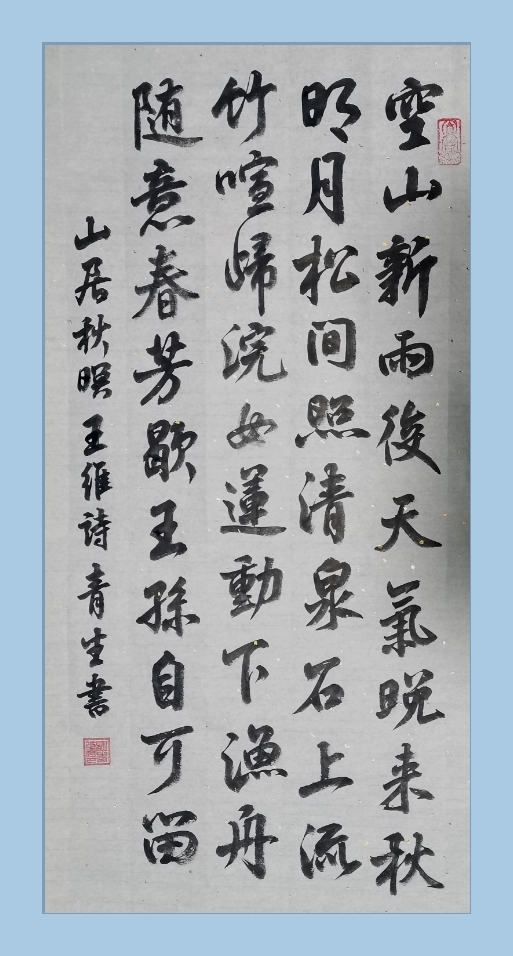 空山新雨後天氣晚来秋
明月松間照清泉石上流
竹喧歸浣女蓮動下漁舟
随意春芳歇王孫自可留
山居秋暝王維詩青生書